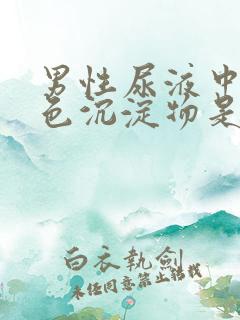 男性尿液中
色沉淀物是
白衣執劍
未经同意禁止转载